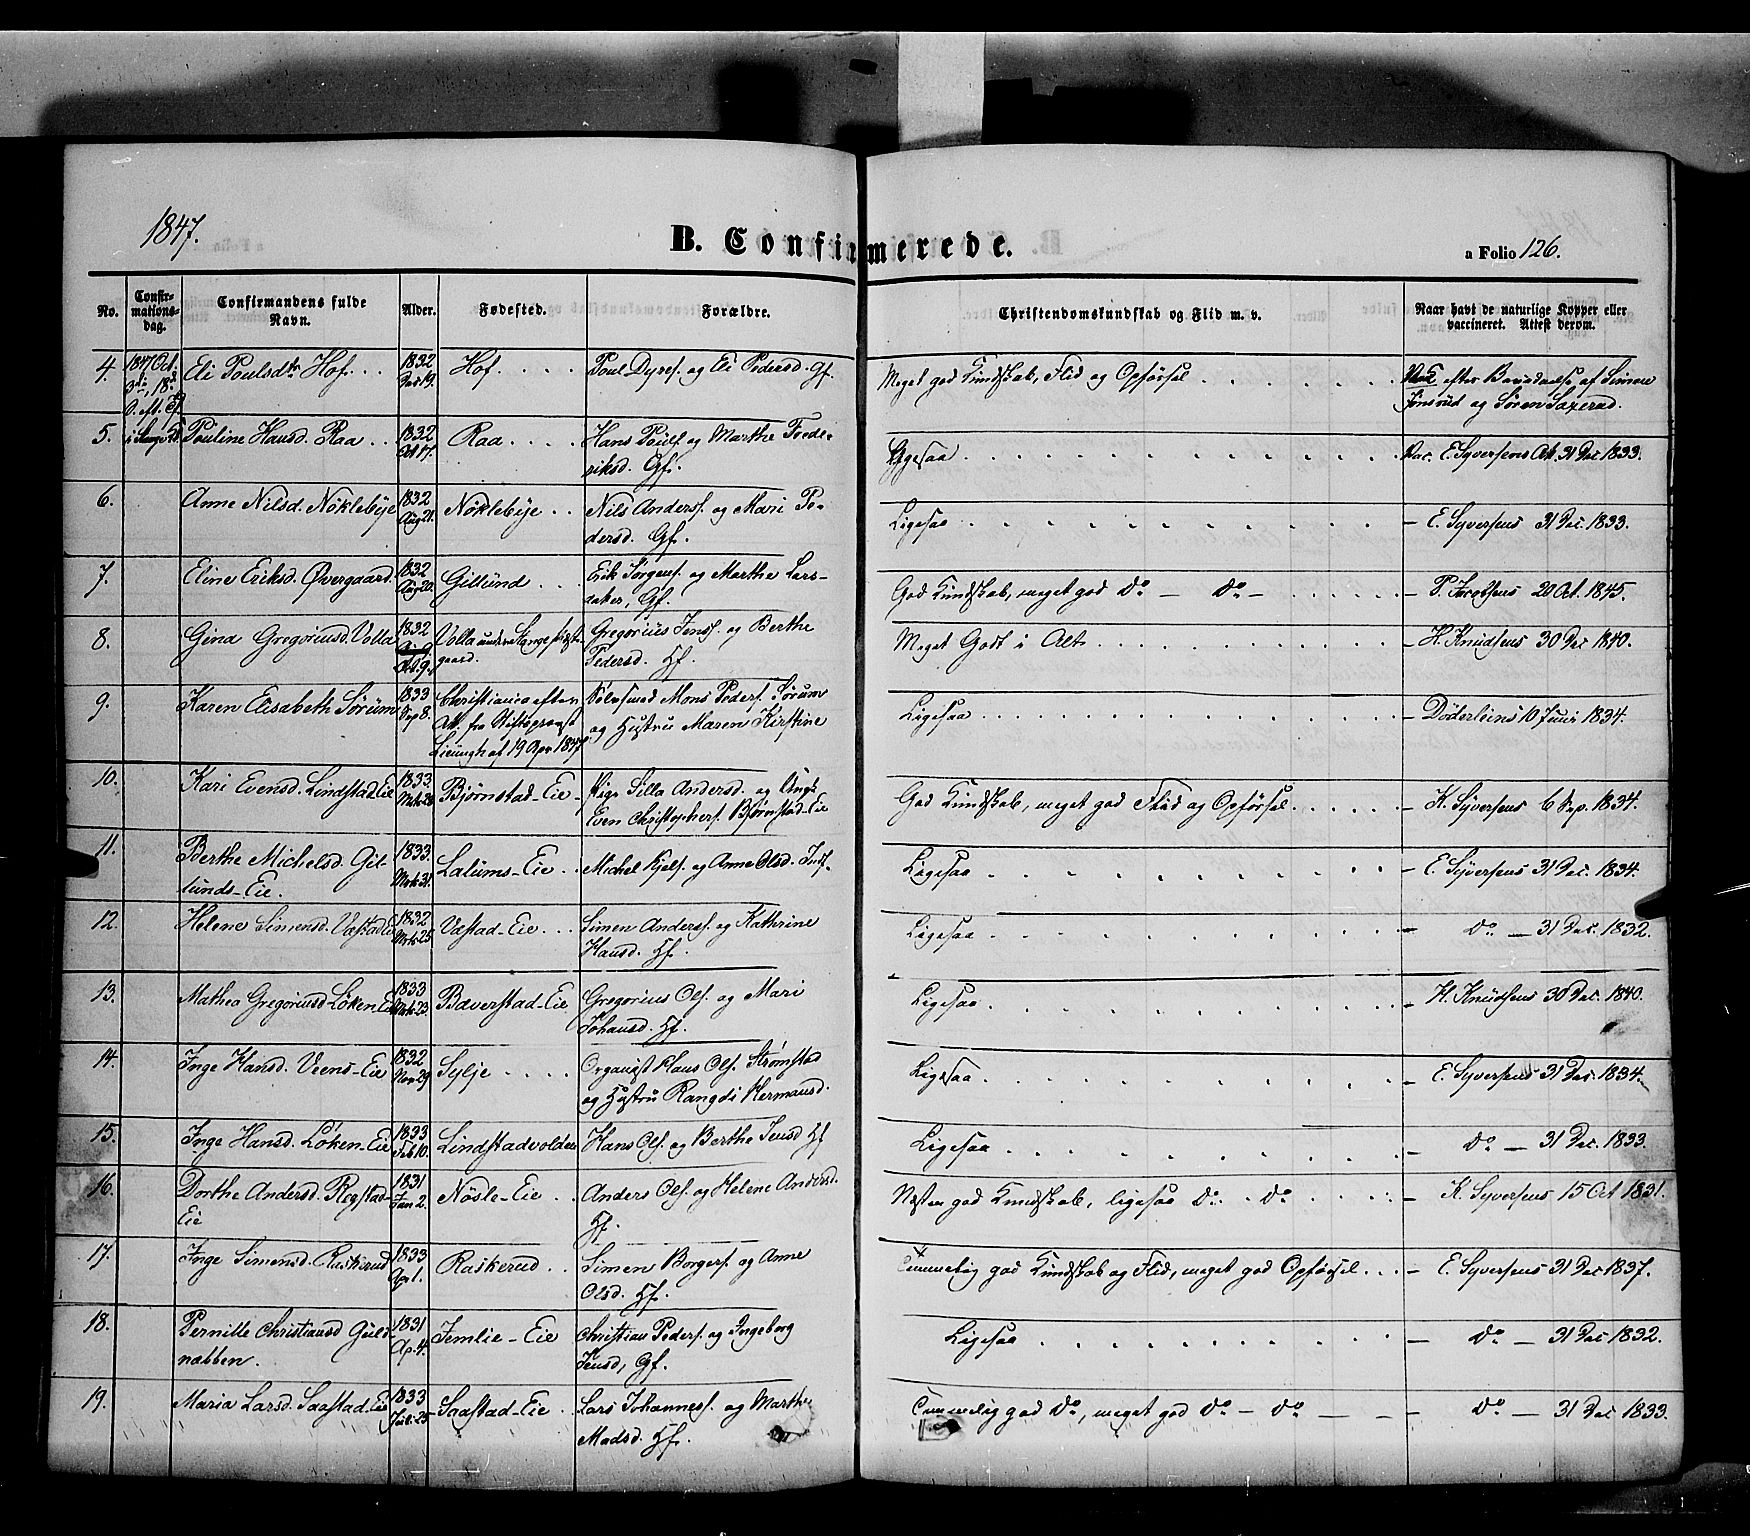 1847.
B. Confirmerede.
a Folio 126.
No.
Confir-
mations-
dag.
Confirmandens fulde
Navn.
Alder.
Fødested.
Forældre.
Christendomskundskab og Flid m. v.
Naar havt de naturlige Kopper eller
vaccineret. Attest derom.
4. 1847 Oct. Eli Poulsdtr Hof. 1832 Hof. Poul Dyres. og Eli Pedersd. Gf. Meget god Kundskab, Flid og Opførsel Vac efter
af Simen
og Søren Saxerud.
5. Pouline Hansd. Raa 1832 Raa Hans Pouls. og Marthe Frede-
Oct 17. riksd. Gf. Ligesaa Vac. E. Syversens At. 31 Dec 1833.
6. Anne Nilsd. Nøklebye 1832 Nøklebye Nils Anders. og Mari Pe-
Aug 21. dersd. Gf. Ligesaa — E. Syversens 31 Dec. 1833.
7. Eline Eriksd. Øvergaard. 1832 Gillund Erik Jørgens. og Marthe Lars-
Aug 20. datter, Gf. God Kundskab, meget god Do — Do — — 20 Oct. 1845.
8. Gina Gregoriusd. Volla 1832 Volla under Stange Præste-
gaard. Gregorius Jens. og Berthe
Oct. 9. Pedersd. Hf. Meget Godt i Alt — H. Knudsens 30 Dec 1840.
9. Karen Elisabeth Sørum 1833 Christiania efter
Sep 8. Att. fra Stiftsprovst
Lieungh af 19 Apr 1847 Mons Peders. Sørum
og Hustru Maren Kirstine Ligesaa — Døderleins 10 Juni 1834.
10. Kari Evensd. Lindstad-Eie 1833 Bjørnstad-Eie Pige Silla Andersd. og Ungk.
Even Christophers. Bjørnstad-Eie God Kundskab, meget god Flid og Opførsel — K. Syversens 6 Sep. 1834.
11. Berthe Michelsd. Gil-
lunds-Eie. 1833. Lalums-Eie Michel Kjels. og Anne Olsd. Inds.
Mrts 31. Ligesaa — E. Syversens 31 Dec. 1834.
12. Helene Simensd. Væstad Ei 1832 Væstad-Eie Simen Anders. og Kathrine
Mrts 25 Hansd. Hf. Ligesaa — Do — 31 Dec. 1832.
13. Mathea Gregoriusd. Løken-Ei 1833 Bæverstad-Eie Gregorius Ols. og Mari
Mrts 23. Johansd. Hf. Ligesaa — H. Knudsens 30 Dec. 1840.
14. Inge Hansd. Veens-Eie 1832 Sylje Organist Hans Ols. Strømstad
Nov 29 og Hustru Rangdi Hermansd. Ligesaa — E. Syversens 31 Dec. 1834.
15. Inge Hansd. Løken-Eie 1833 Lindstadvolden Hans Ols. og Berthe Jensd Hf
Feb 10. Ligesaa — Do — 31 Dec. 1833.
16. Dorthe Andersd. Regstad-
Eie 1831 Nøsle-Eie Anders Ols. og Helene Andersd.
Jan 2. Hf. Næsten god Kundskab, ligesaa Do. Do — K. Syversens 15 Oct 1831.
17. Inge Simensd. Raskerud 1833 Raskerud Simen Borgers. og Anne
Ap 1. Olsd. Hf. Temmelig god Kundskab og Flid, meget god Opførsel — E. Syversens 31 Dec 1837.
18. Pernille Christiansd Guld-
næbben. 1831 Jemlie-Eie Christian Peders. og Ingeborg
Ap. 4. Jensd, Gf. Ligesaa — Do — 31 Dec 1832.
19. Maria Larsd. Saastad-Eie 1833 Saastad-Eie Lars Johanness. og Marthe
Jul. 25 Madsd. Hf. Temmelig god Do, meget god Do — Do — — Do — 31 Dec 1833.